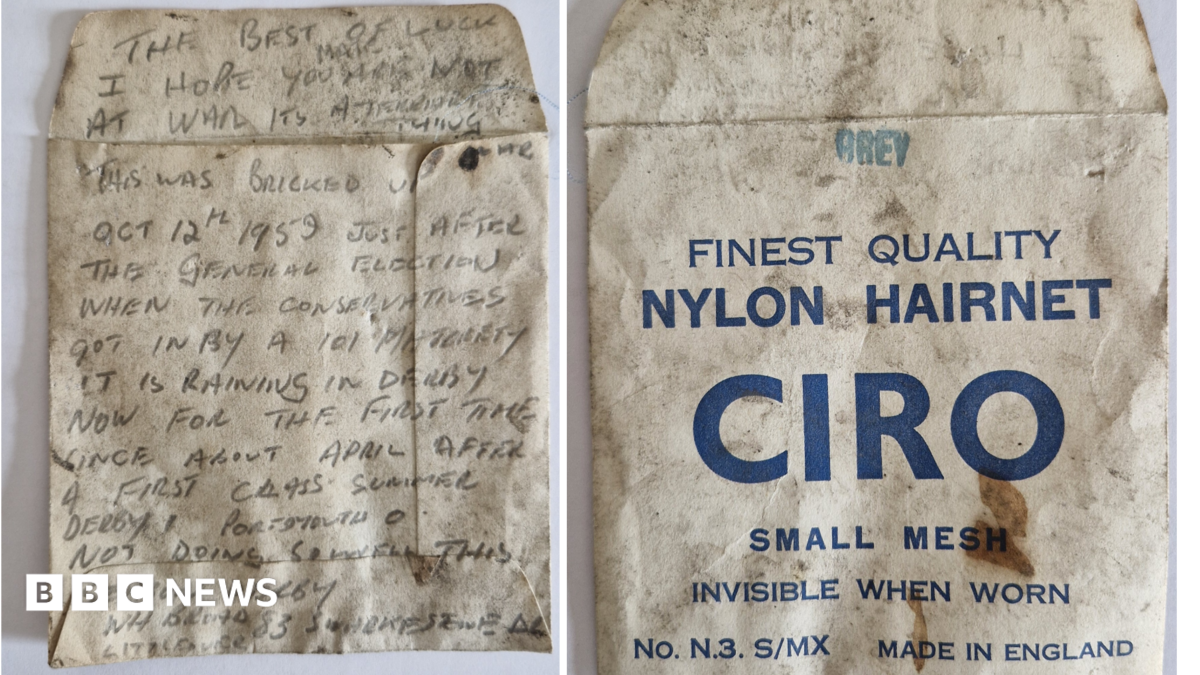 THE BEST OF LUCK
MATE
I HOPE YOU ARE NOT
AT WAR ITS A TERRIBLE
THING
WAR
THIS WAS BRICKED UP
OCT 12TH 1959 JUST AFTER
THE GENERAL ELECTION
WHEN THE CONSERVATIVES
GOT IN BY A 101 MAJORITY
IT IS RAINING IN DERBY
NOW FOR THE FIRST TIME
SINCE ABOUT APRIL AFTER
A FIRST CLASS SUMMER
DERBY 1 PORTSMOUTH 0
NOT DOING SO WELL THIS
83
BBC NEWS
GREY
FINEST QUALITY
NYLON HAIRNET
CIRO
SMALL MESH
INVISIBLE WHEN WORN
No. N.3. S/MX MADE IN ENGLAND